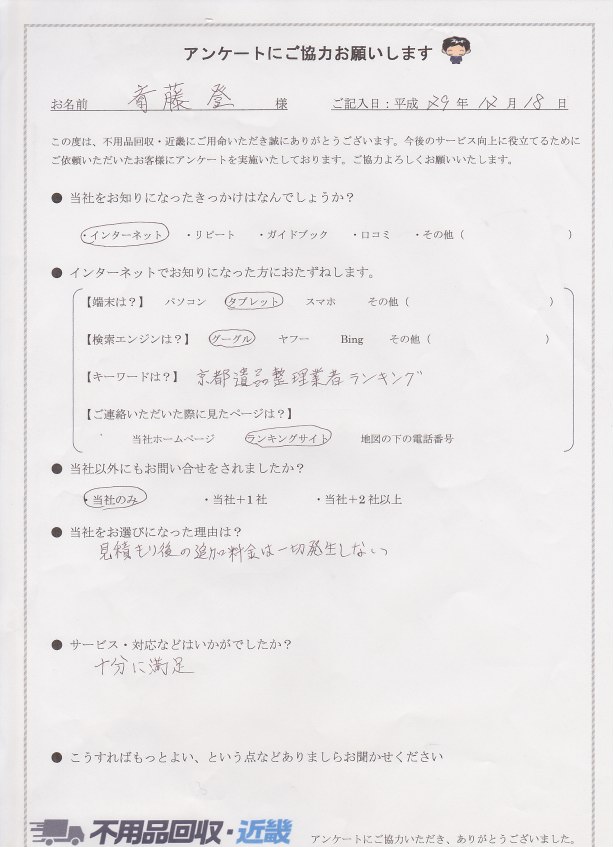 アンケートにご協力お願いします
お名前 斉藤登 様 ご記入日：平成 29 年 12 月 18 日
この度は、不用品回収・近畿にご用命いただき誠にありがとうございます。今後のサービス向上に役立てるために
ご依頼いただいたお客様にアンケートを実施いたしております。ご協力よろしくお願いいたします。
● 当社をお知りになったきっかけはなんでしょうか？
・インターネット ・リピート ・ガイドブック ・口コミ ・その他（ ）
● インターネットでお知りになった方におたずねします。
【端末は？】 パソコン タブレット スマホ その他（ ）
【検索エンジンは？】 グーグル ヤフー Bing その他（ ）
【キーワードは？】 京都遺品整理業者ランキング
【ご連絡いただいた際に見たページは？】
当社ホームページ ランキングサイト 地図の下の電話番号
● 当社以外にもお問い合せをされましたか？
・当社のみ ・当社＋1社 ・当社＋2社以上
● 当社をお選びになった理由は？
見積もり後の追加料金は一切発生しない
● サービス・対応などはいかがでしたか？
十分に満足
● こうすればもっとよい、という点などありましらお聞かせください
不用品回収・近畿 アンケートにご協力いただき、ありがとうございました。